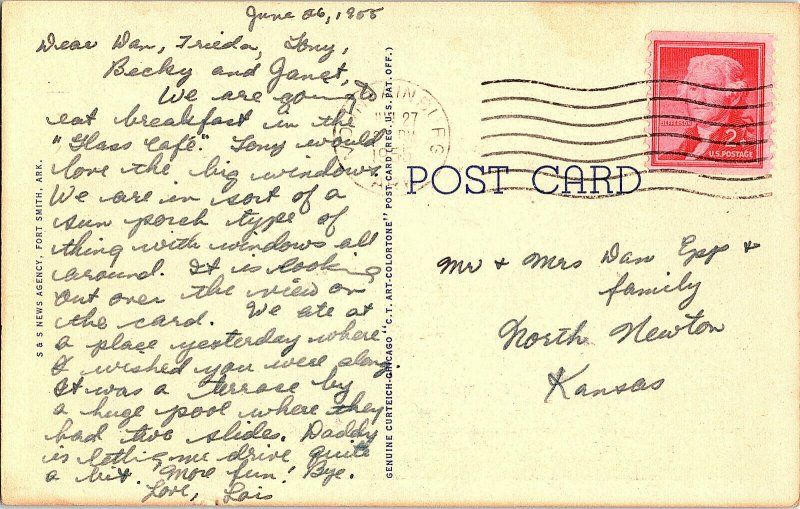 June 26, 1955
Dear Dan, Frieda, Tony,
Becky and Janet,
We are going to
eat breakfast in the
"Glass Café". Tony would
love the big windows.
We are in sort of a
sun porch type of
thing with windows all
around. It is looking
out over the view on
the card. We ate at
a place yesterday where
I wished you were along
It was a terrase by
a huge pool where they
had two slides. Daddy
is letting me drive quite
a bit. More fun! Bye.
Love, Lois
S & S NEWS AGENCY, FORT SMITH, ARK.
GENUINE CURTEICH-CHICAGO "C.T. ART-COLORTONE" POST CARD (REG. U.S. PAT. OFF.)
27
JEFFERSON
2¢
U.S. POSTAGE
POST CARD
Mr & Mrs Dan Epp &
family
North Newton
Kansas